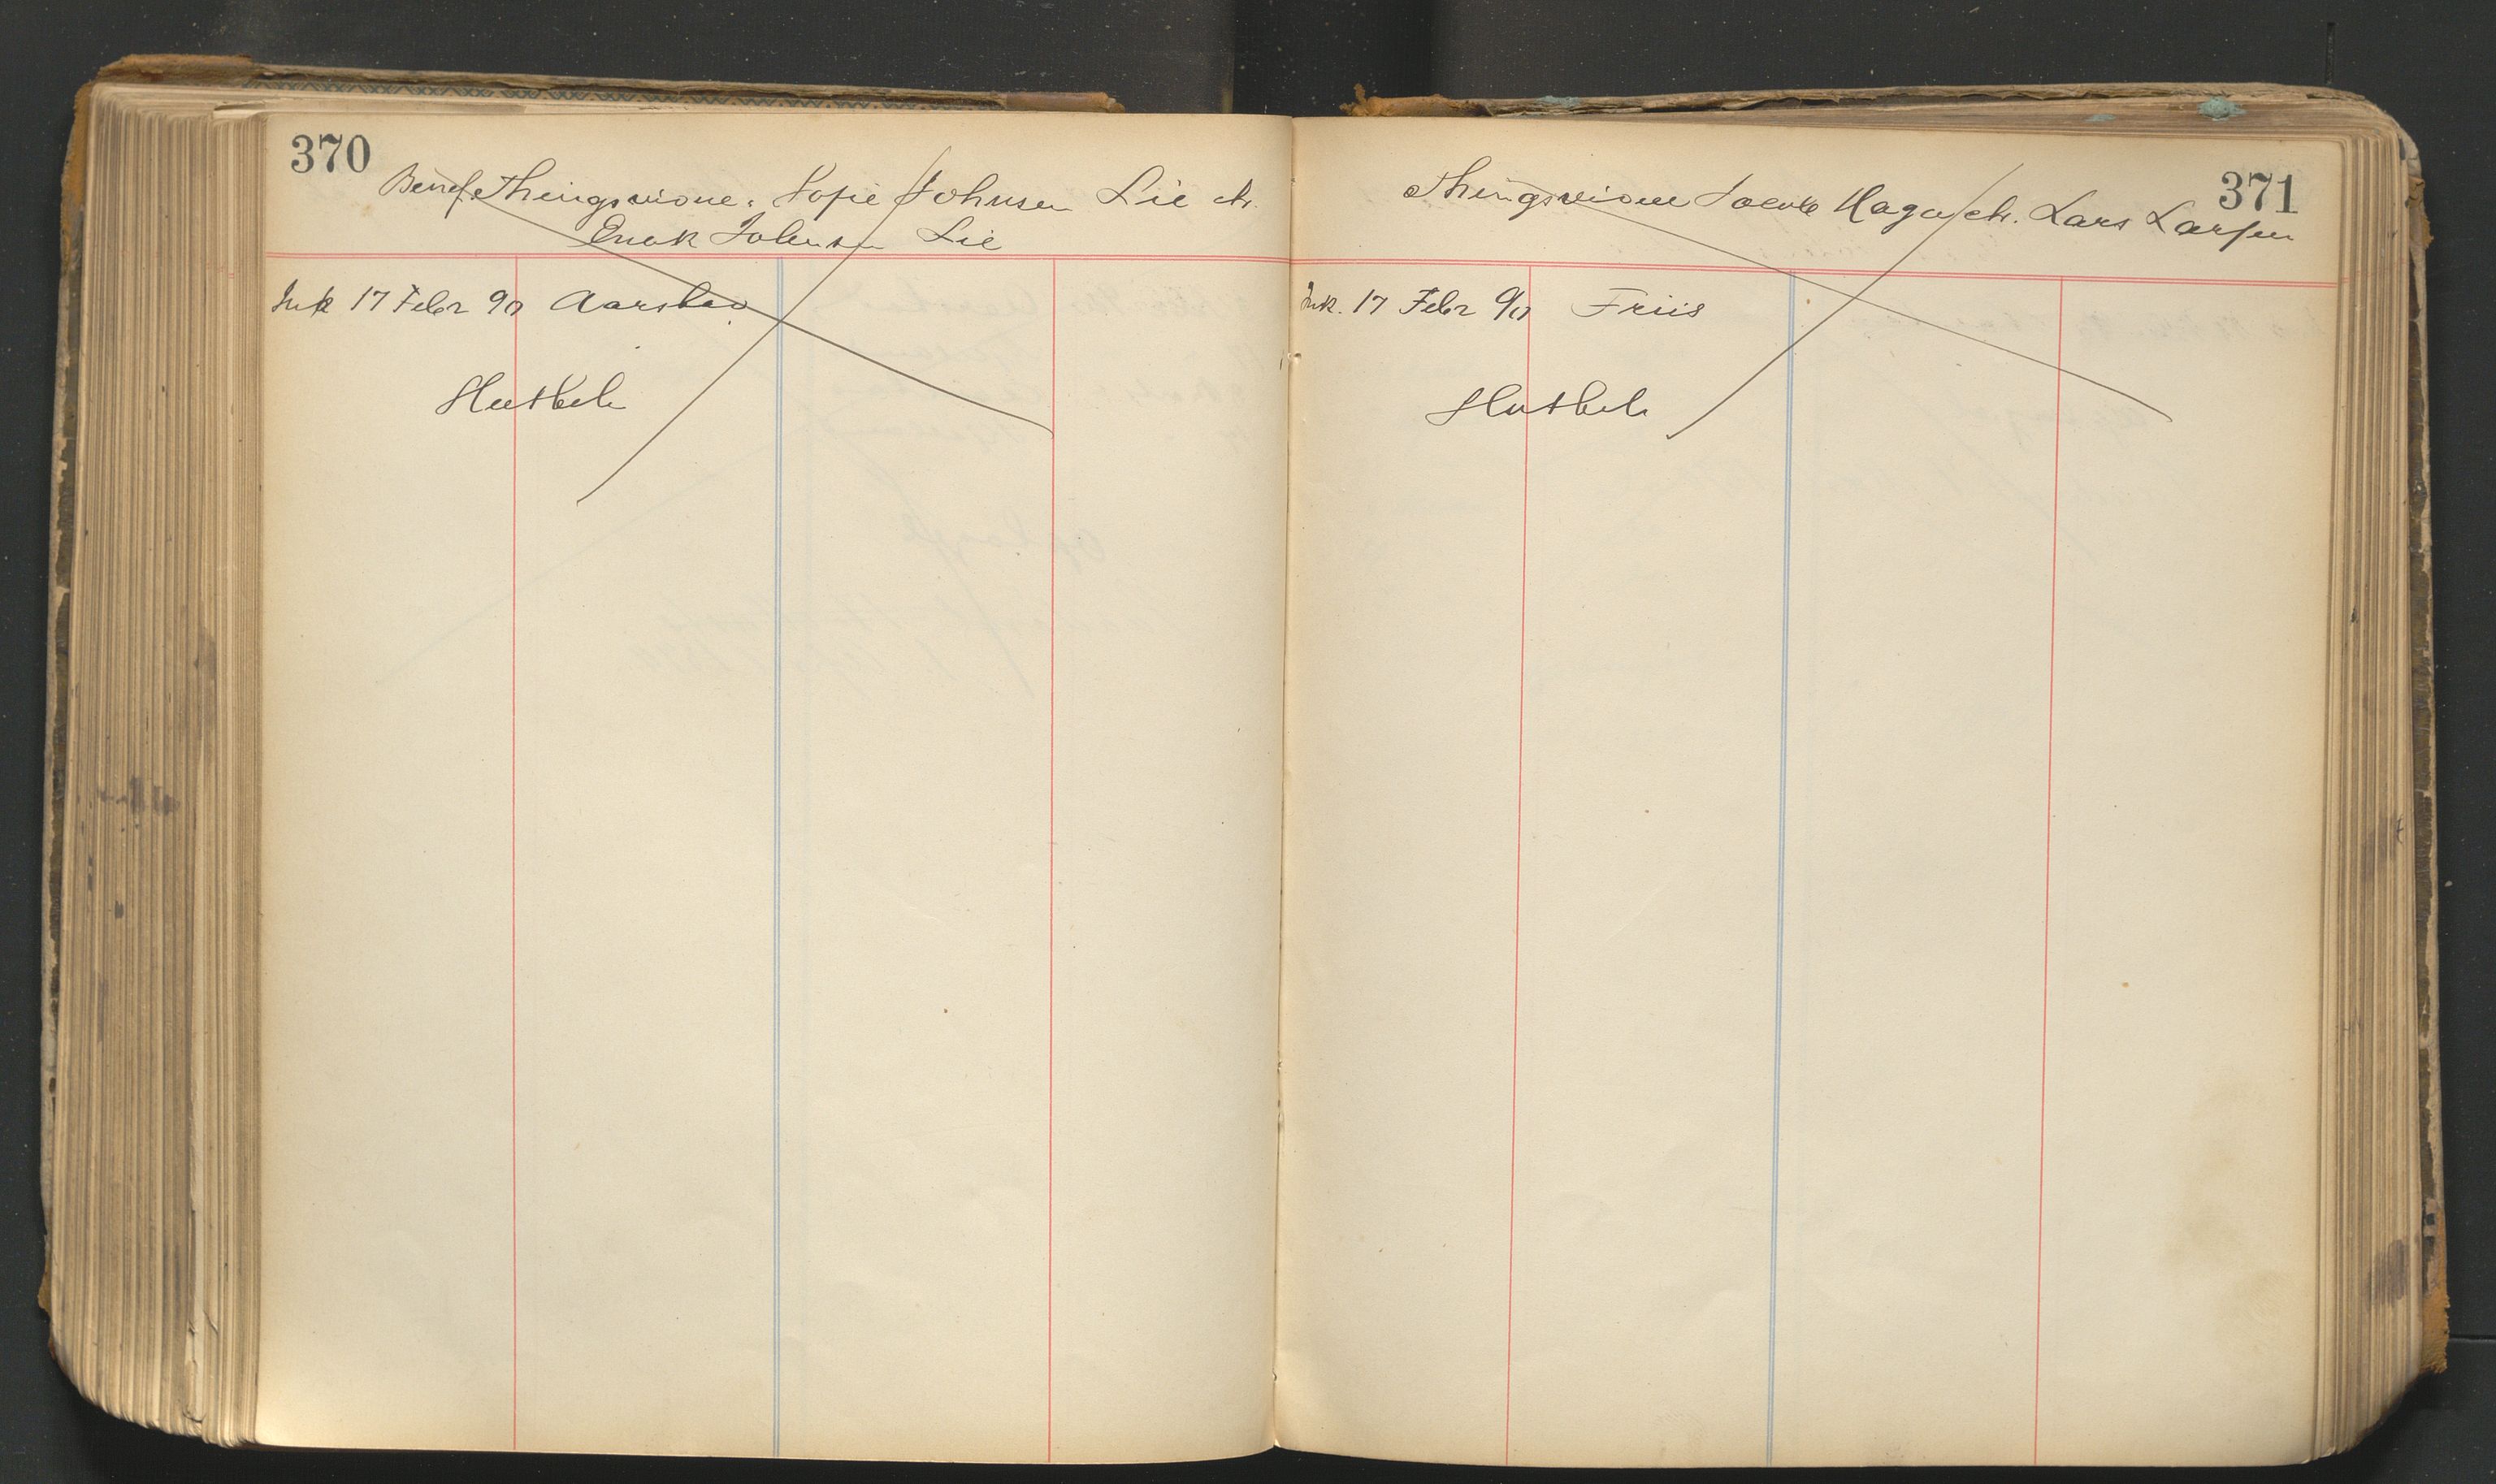 370
Benef. Thingsvidne. Sofie Johnsen Lie ctr.
Enok Johnsen Lie
Ink 17 Febr 90 Aarstad
Hutbeh
371
Thingsvidne Haga ctr. Lars Larsen
Ink. 17 Febr 90 Friis
Hutbeh